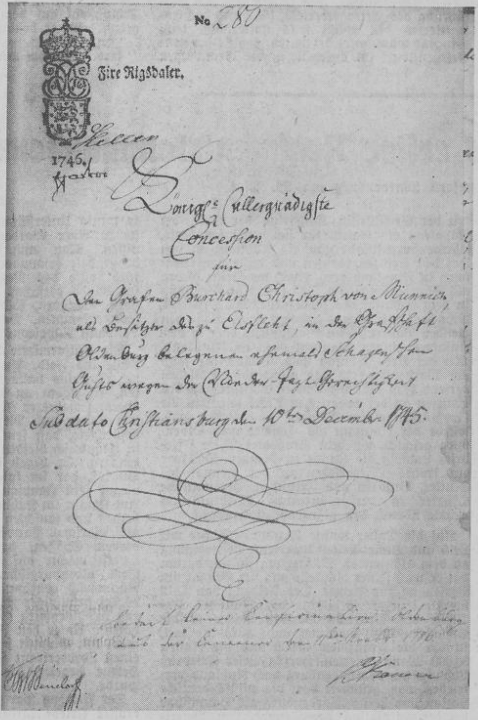 No 280
Fire Rigsdaler.
1746.
Königl. Allergnädigste
Concession
für
Den Grafen Burchard Christoph von Munnich,
als Besitzer des zu Elsfleht, in der Graffschaft
Oldenburg belegenen ehemals Schagenschen
Guhts wegen der Nieder-Jagt-Gerechtigkeit
Sub dato Christiansburg den 10ten December 1745.
bedarf keiner Confirmation, Oldenburg
aus der den